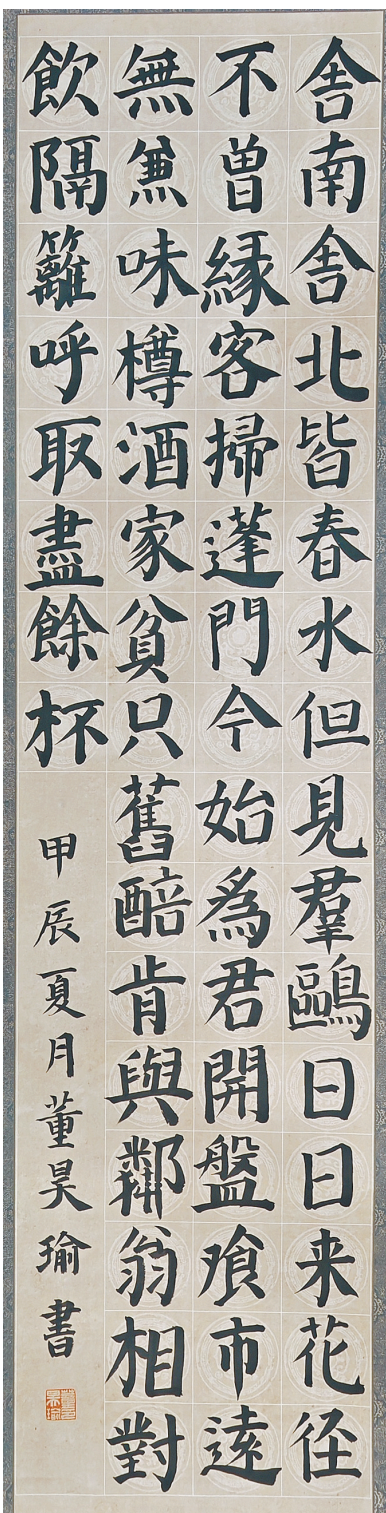 舎南舎北皆春水但見羣鷗日日来花径
不曽縁客掃蓬門今始為君開盤飡市遠
無兼味樽酒家貧只舊醅肯與鄰翁相對
飲隔籬呼取盡餘杯
甲辰夏月董昊瑜書